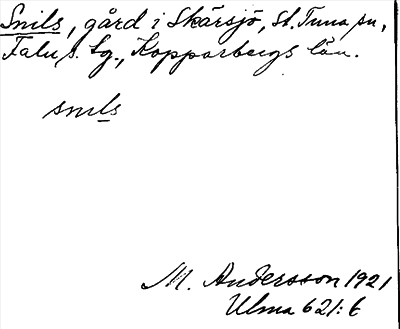 Snils, gård i Skärsjö, St. Tuna sn,
Falu s. lg., Kopparbergs län.
snils
M. Andersson 1921
Ulma 621:6